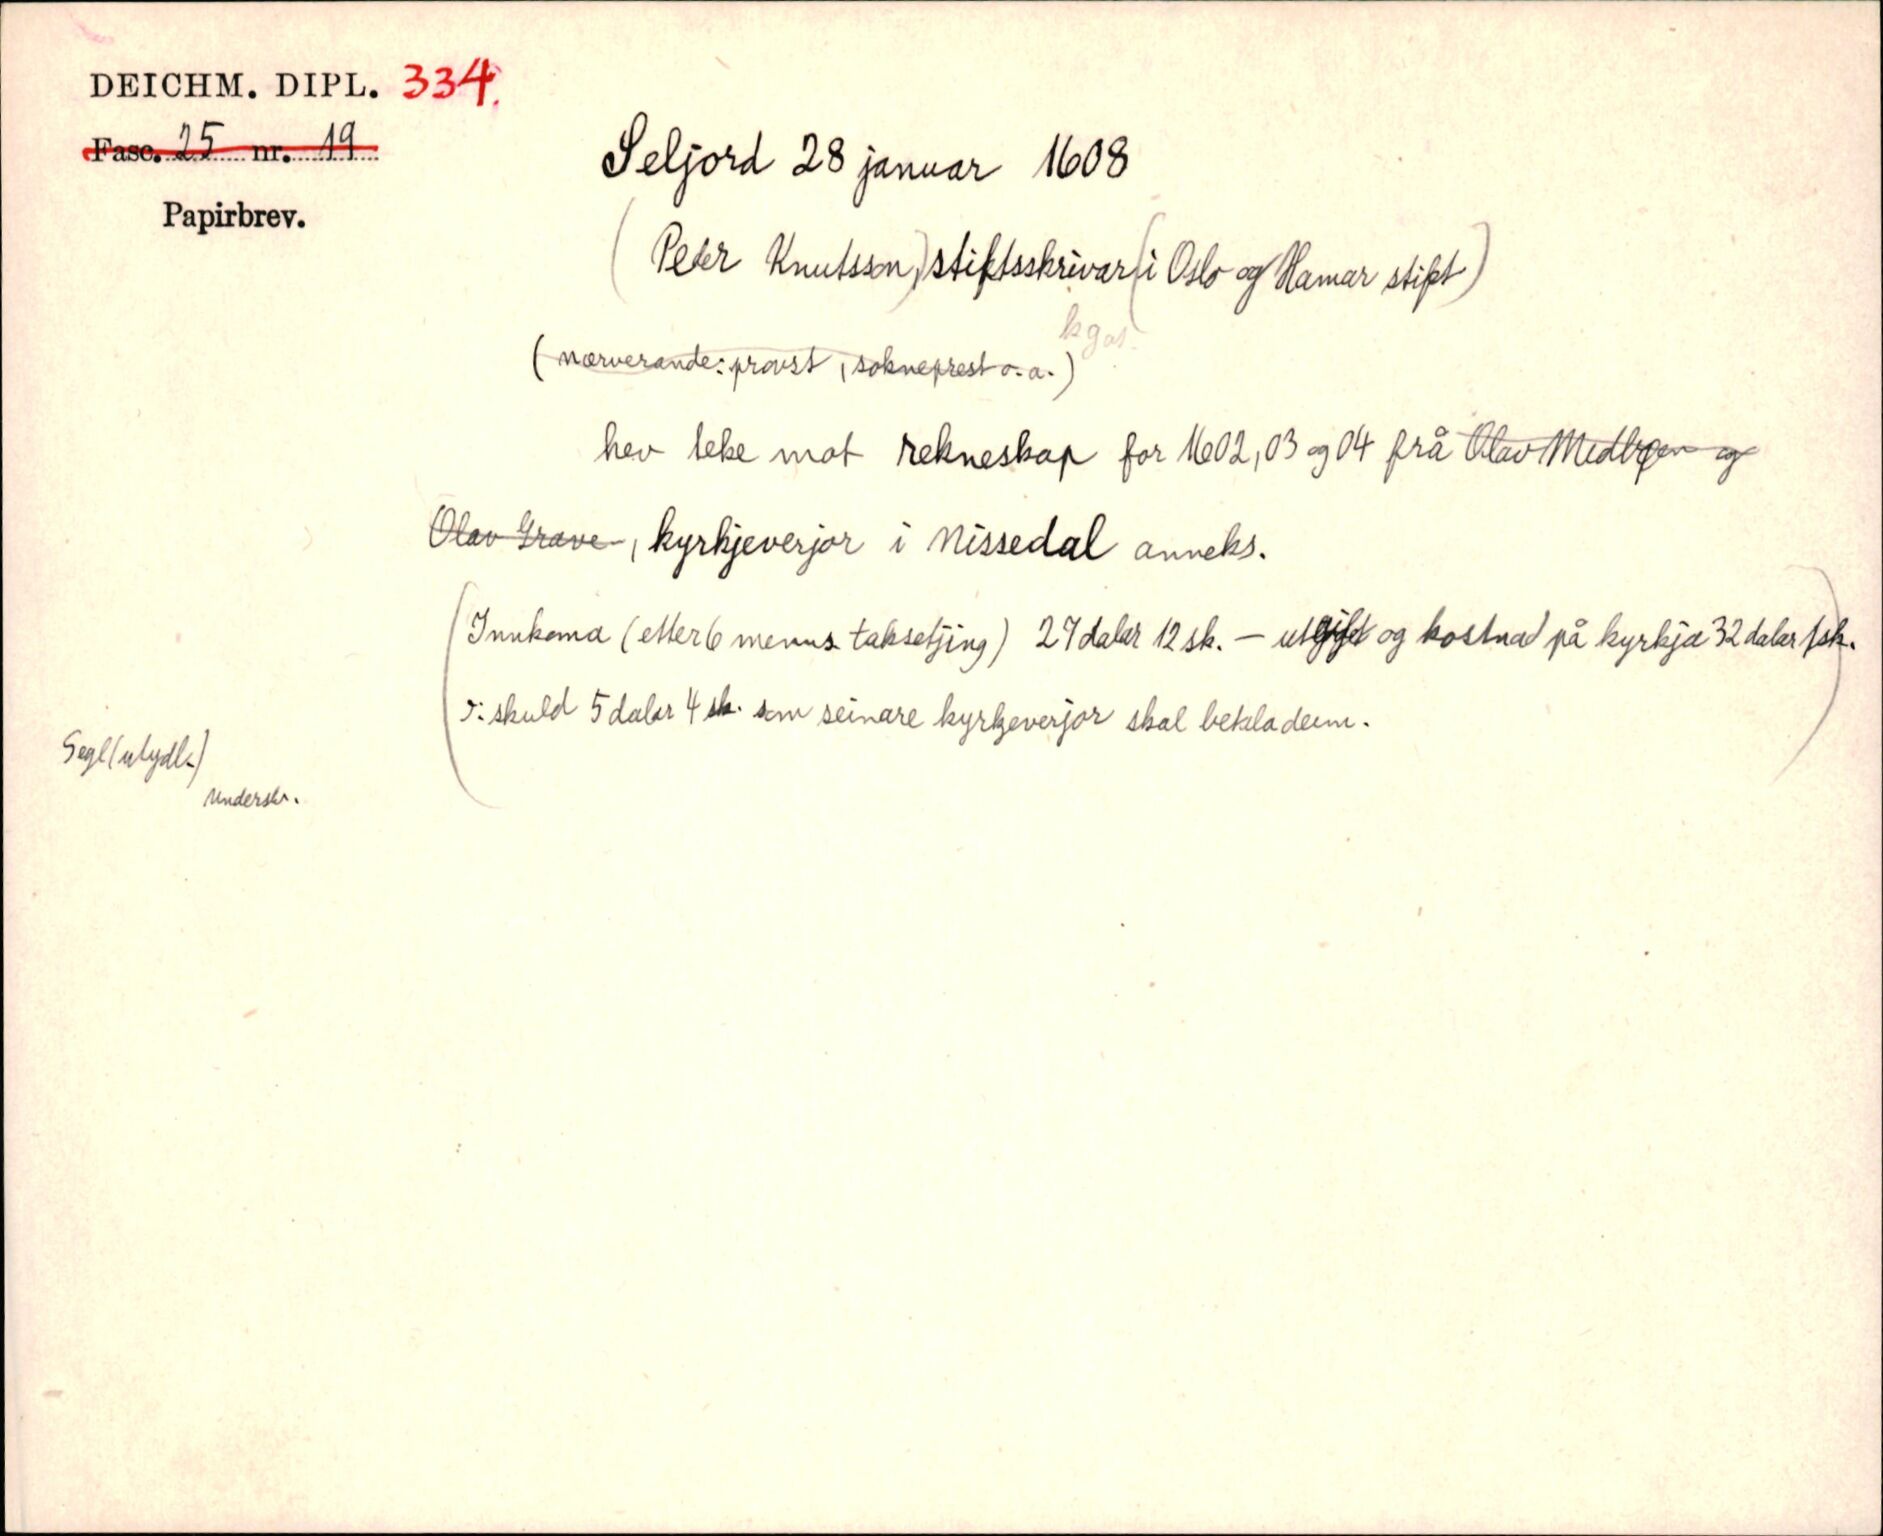 DEICHM. DIPL. 334.
Fasc. 25 nr. 19
Papirbrev.
Seljord 28 januar 1608
(Peder Knutsson,) stiftsskrivar (i Oslo og Hamar stift)
(nærverande: provst, sokneprest o.a.)
hev teke mot rekneskap for 1602, 03 og 04 frå Olav og
Olav Grave, kyrkjeverjor i Nissedal anneks.
(Innkoma (etter 6 menns taksetjing) 27 dalar 12 sk. — utgift og kostnad på kyrkja 32 dalar 1 sk.
ɔ: skuld 5 dalar 4 sk. som seinare kyrkjeverjor skal betala deim.)
Segl (utydl.)
Underskr.